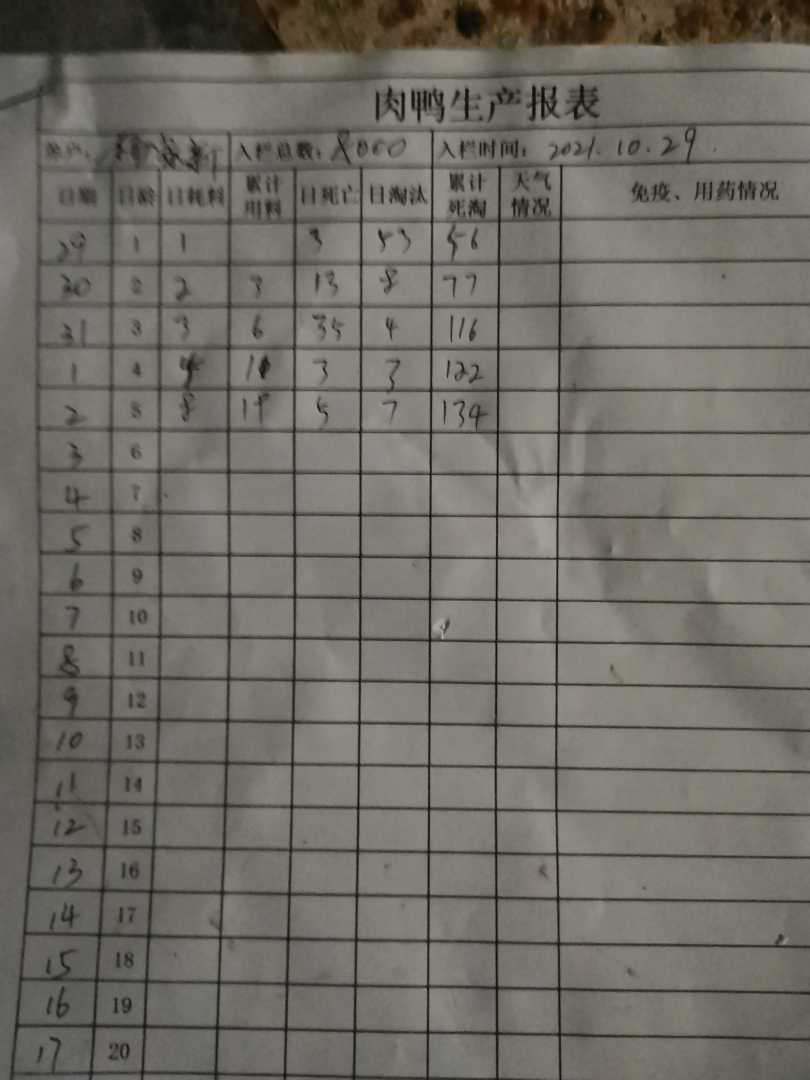 肉鸭生产报表
养户: 入栏总数: 8000 入栏时间: 2021.10.29.
日期 日龄 日耗料 累计用料 日死亡 日淘汰 累计死淘 天气情况 免疫、用药情况
29 1 1 3 53 56
30 2 2 3 13 8 77
31 3 3 6 35 4 116
1 4 4 10 3 3 122
2 5 8 18 5 7 134
3 6
4 7
5 8
6 9
7 10
8 11
9 12
10 13
11 14
12 15
13 16
14 17
15 18
16 19
17 20